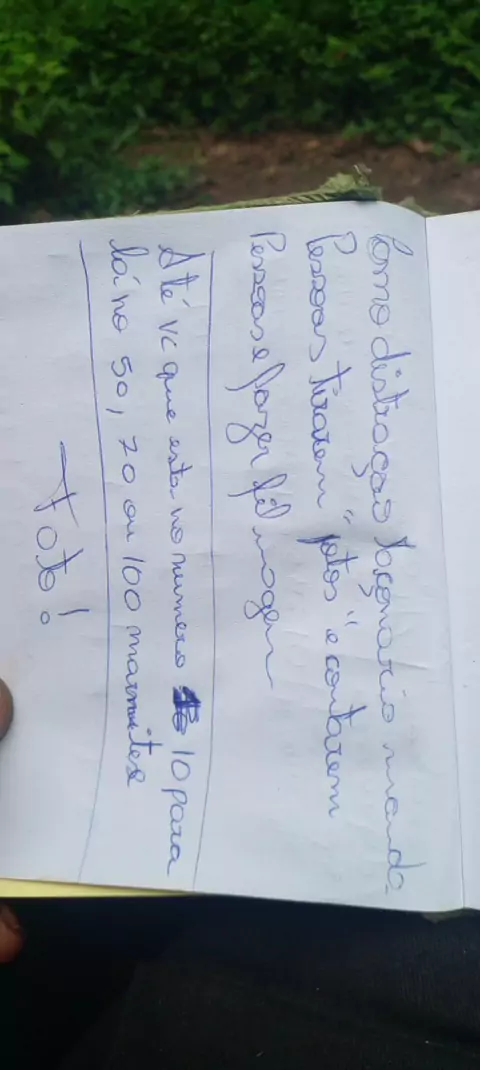 Como distração façonario mando
Pessoas tirarem "fotos" e contarem
Pessoas e fazer filmagem
Até vc que esta no numero 10 para
lá no 50, 70, ou 100 marmitex
Foto!